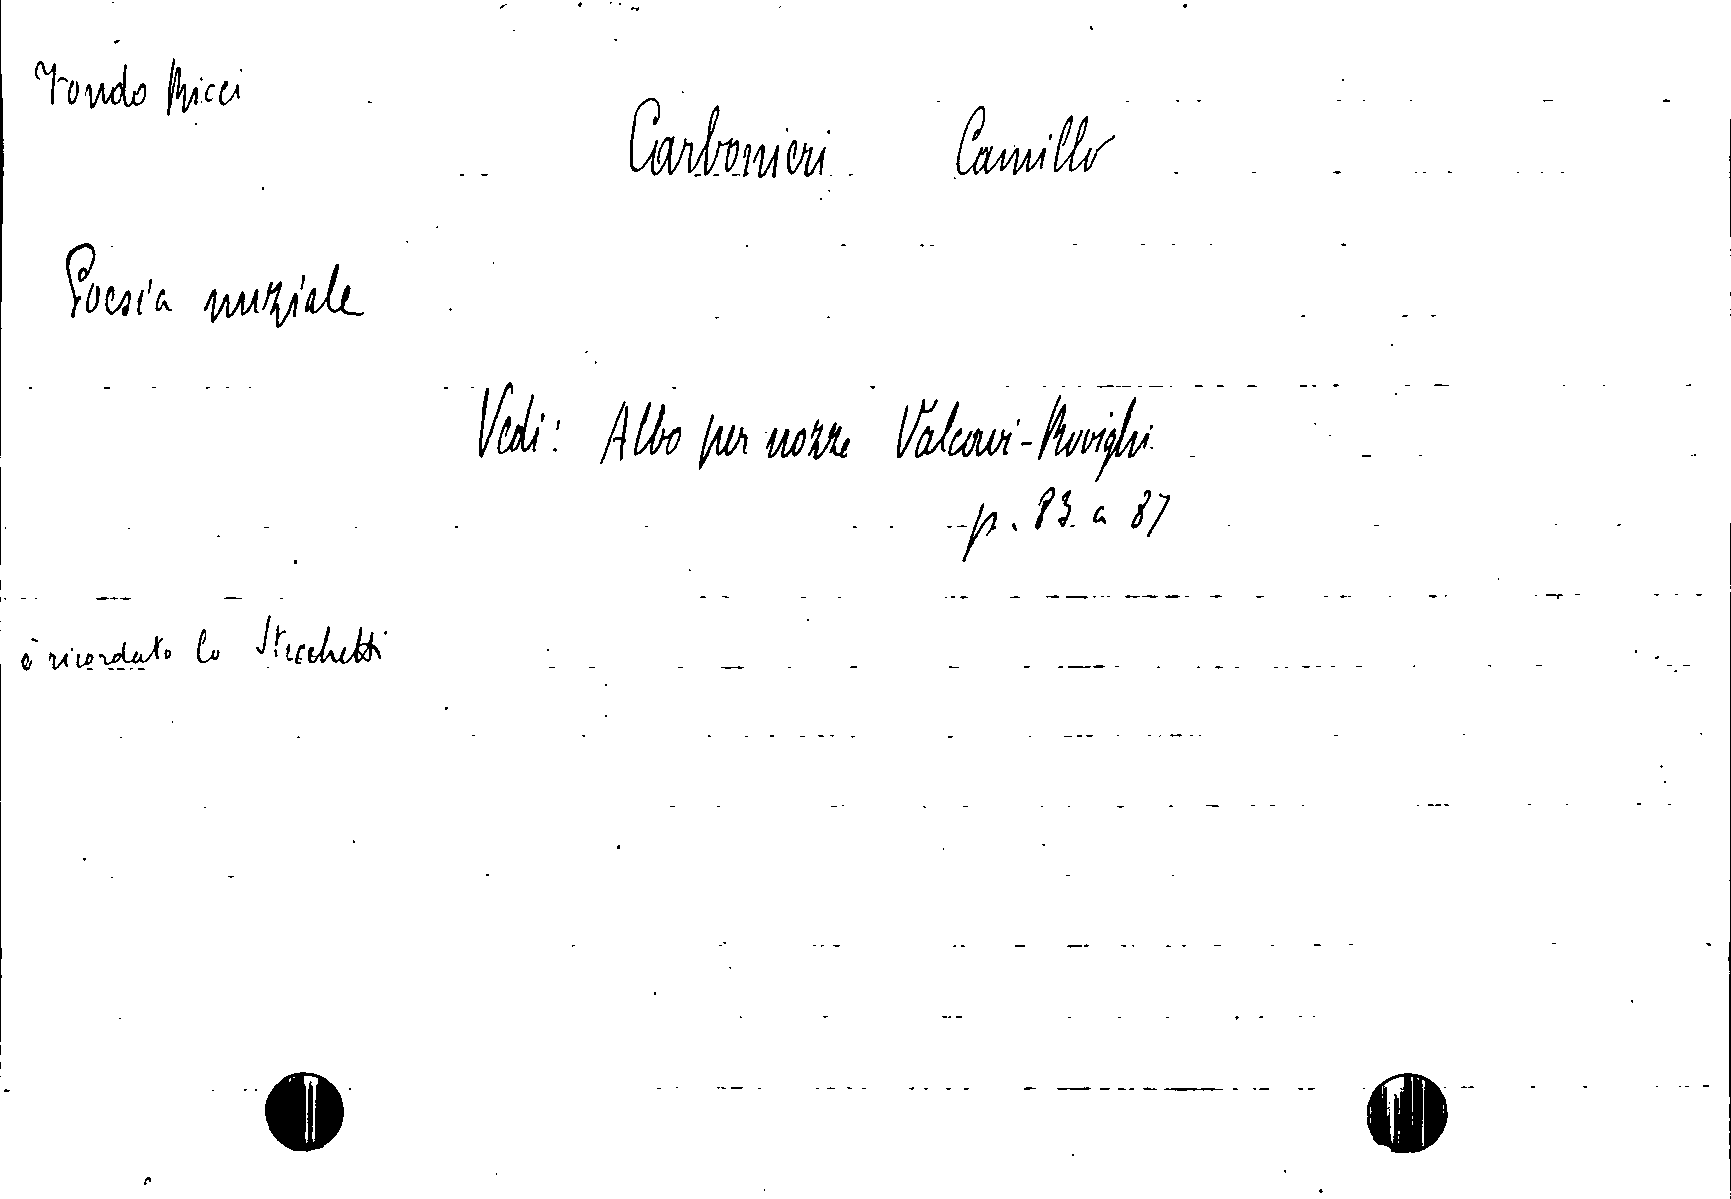 Fondo Ricci
Carbonieri Camillo
Poesia nuziale
Vedi: Albo per nozze Valcavi-Rovighi
p. 83 a 87
è ricordato lo Stecchetti